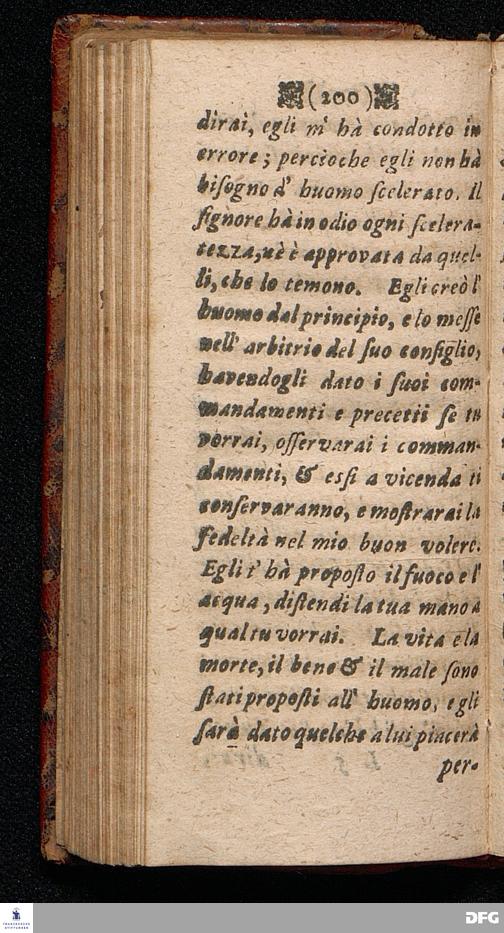 (200)
dirai, egli m' hà condotto in
errore; percioche egli non hà
bisogno d' huomo scelerato. Il
signore hà in odio ogni scelera-
tezza, nè è approvata da quel-
li, che lo temono. Egli creò l'
huomo dal principio, e lo messe
nell' arbitrio del suo consiglio,
havendogli dato i suoi com-
mandamenti e precetii se tu
vorrai, osservarai i comman-
damenti, & essi a vicenda ti
conservaranno, e mostrarai la
fedeltà nel mio buon volere.
Egli t' hà proposto il fuoco e l'
acqua, distendi la tua mano a
qual tu vorrai. La vita e la
morte, il bene & il male sono
stati proposti all' huomo, egli
sarà dato quelche a lui piacerà
per-
FRANCKESCHE
STIFTUNGEN
DFG